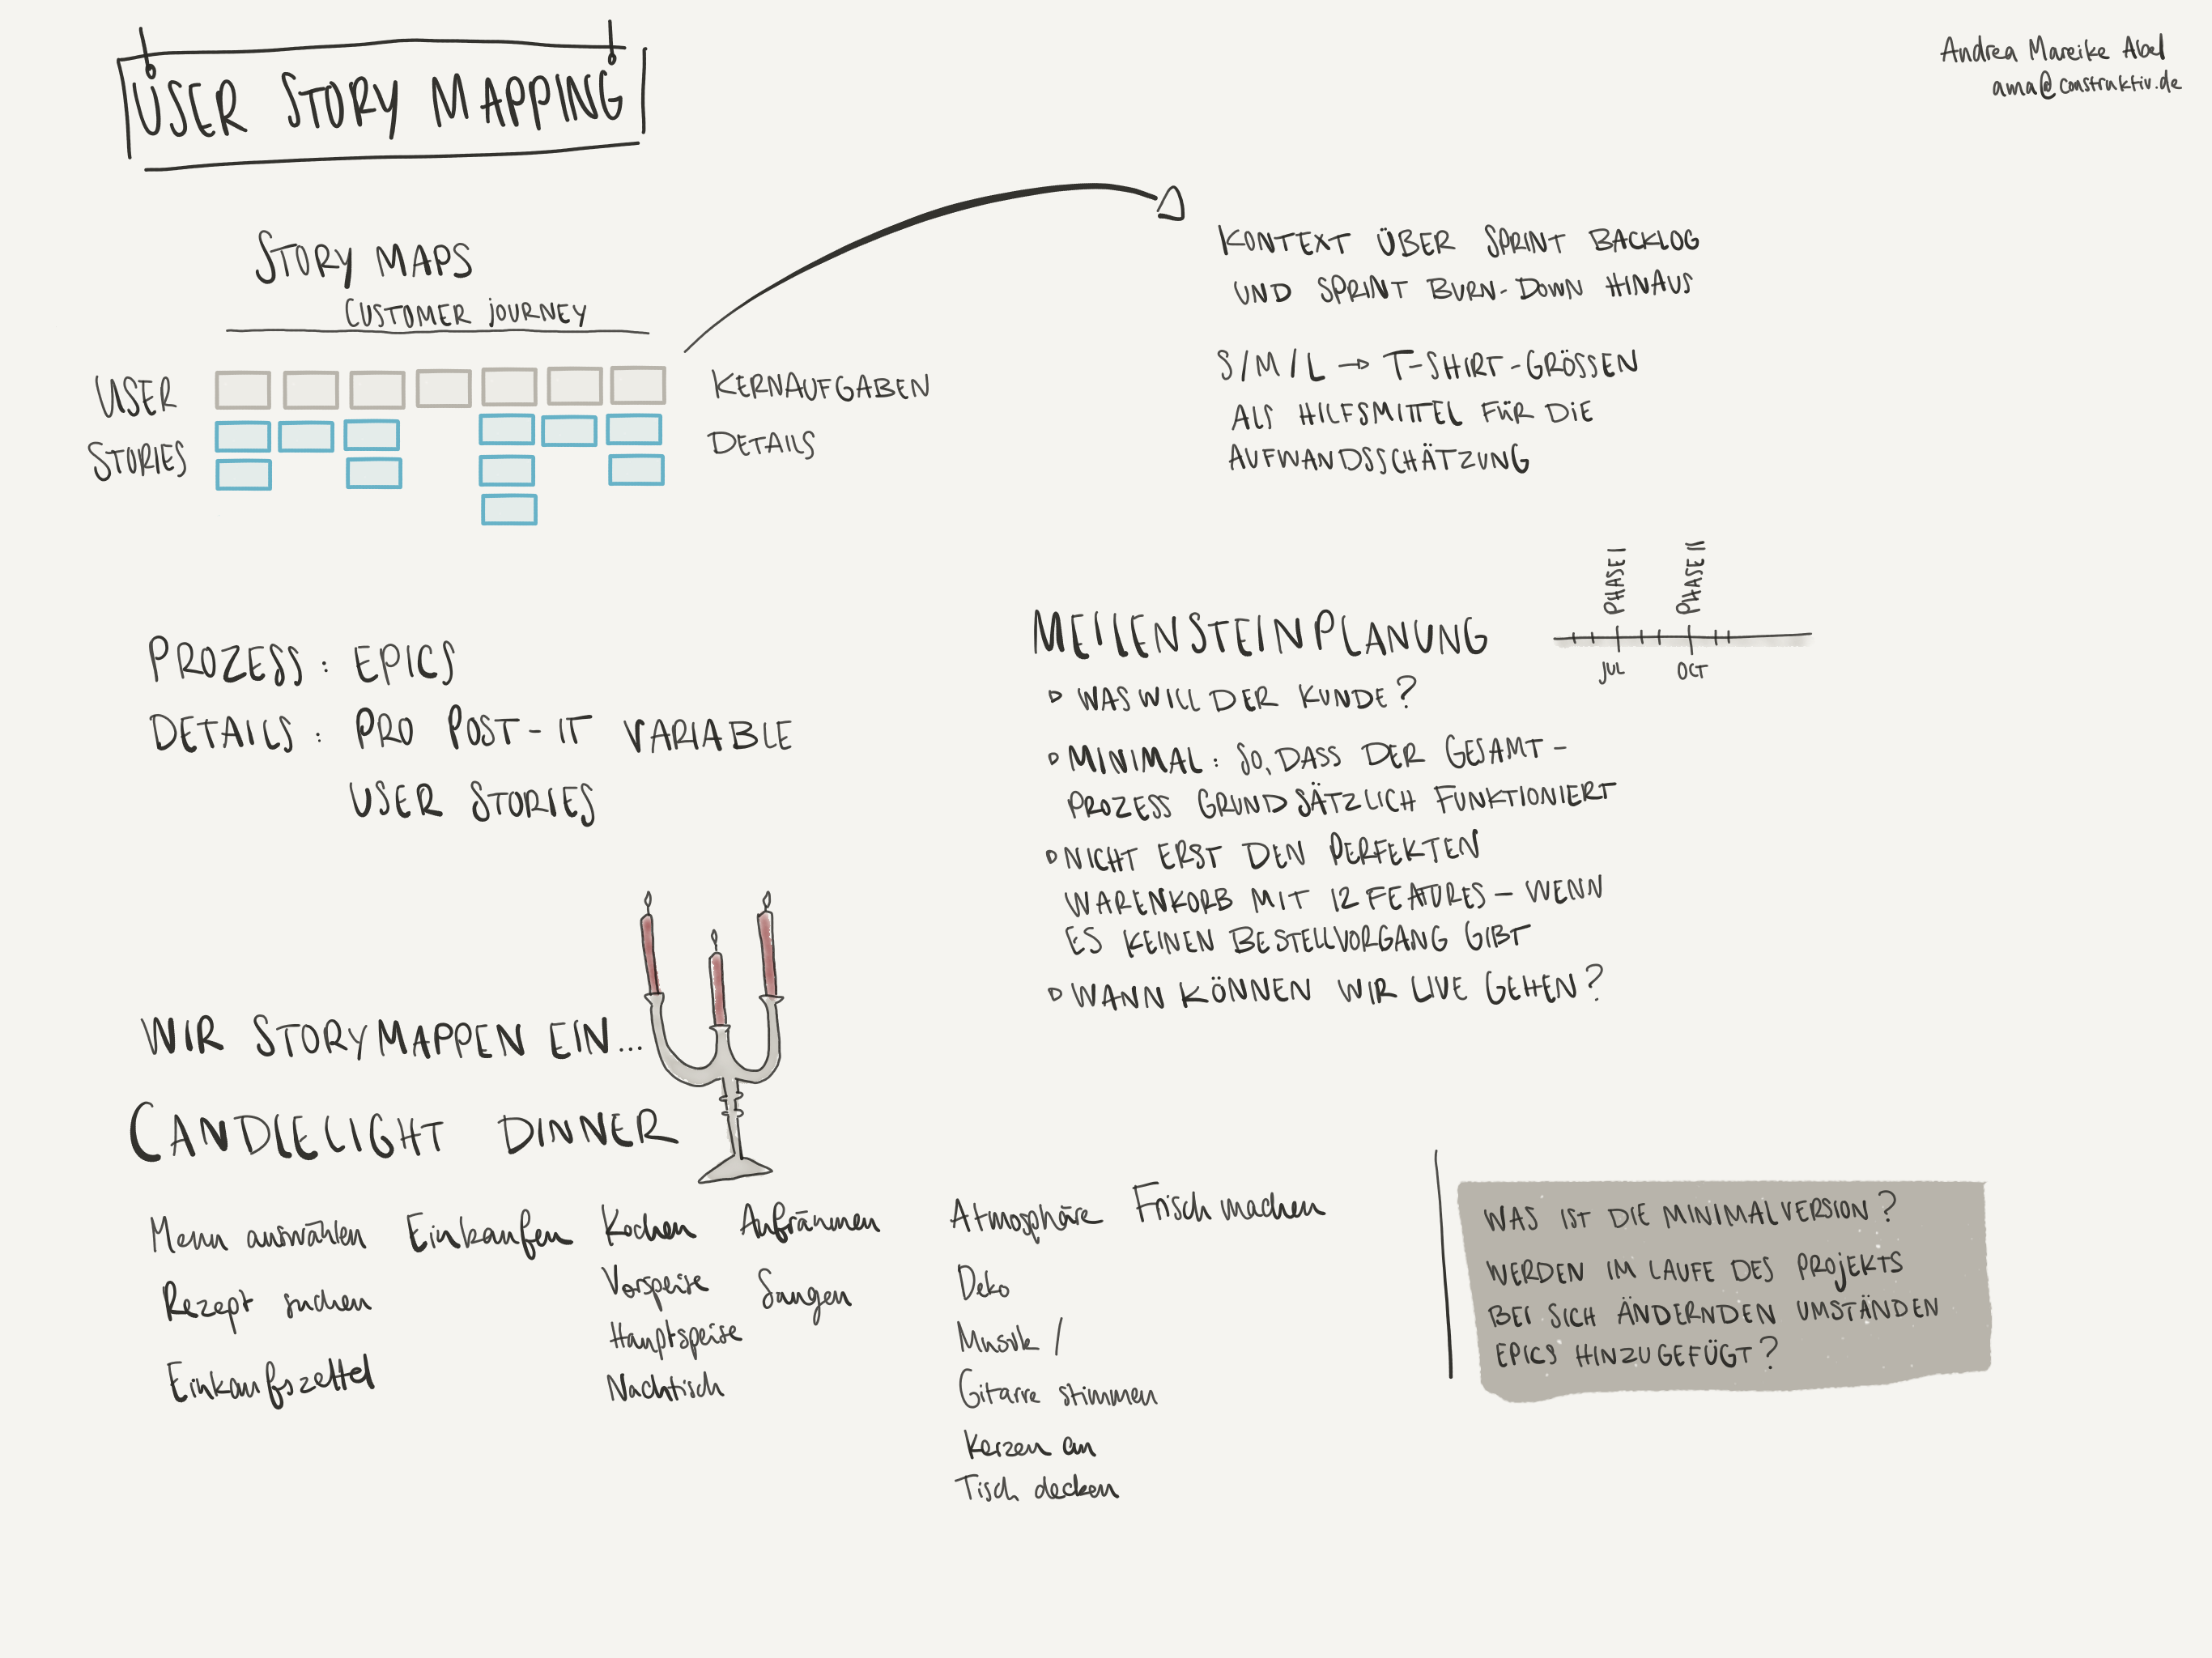 USER STORY MAPPING
Andrea Mareike Abel
ama@construktiv.de
STORY MAPS
CUSTOMER JOURNEY
USER
STORIES
KERNAUFGABEN
DETAILS
KONTEXT ÜBER SPRINT BACKLOG
UND SPRINT BURN-DOWN HINAUS
S/M/L → T-SHIRT-GRÖSSEN
ALS HILFSMITTEL FÜR DIE
AUFWANDSSCHÄTZUNG
PROZESS: EPICS
DETAILS: PRO POST-IT VARIABLE
USER STORIES
MEILENSTEINPLANUNG
PHASE I
PHASE II
JUL
OCT
WAS WILL DER KUNDE?
MINIMAL: SO, DASS DER GESAMT-
PROZESS GRUNDSÄTZLICH FUNKTIONIERT
NICHT ERST DEN PERFEKTEN
WARENKORB MIT 12 FEATURES – WENN
ES KEINEN BESTELLVORGANG GIBT
WANN KÖNNEN WIR LIVE GEHEN?
WIR STORYMAPPEN EIN...
CANDLELIGHT DINNER
Menu auswählen
Rezept suchen
Einkaufszettel
Einkaufen
Kochen
Vorspeise
Hauptspeise
Nachtisch
Aufräumen
Saugen
Atmosphäre
Deko
Musik /
Gitarre stimmen
Kerzen an
Tisch decken
Frisch machen
WAS IST DIE MINIMALVERSION?
WERDEN IM LAUFE DES PROJEKTS
BEI SICH ÄNDERNDEN UMSTÄNDEN
EPICS HINZUGEFÜGT?